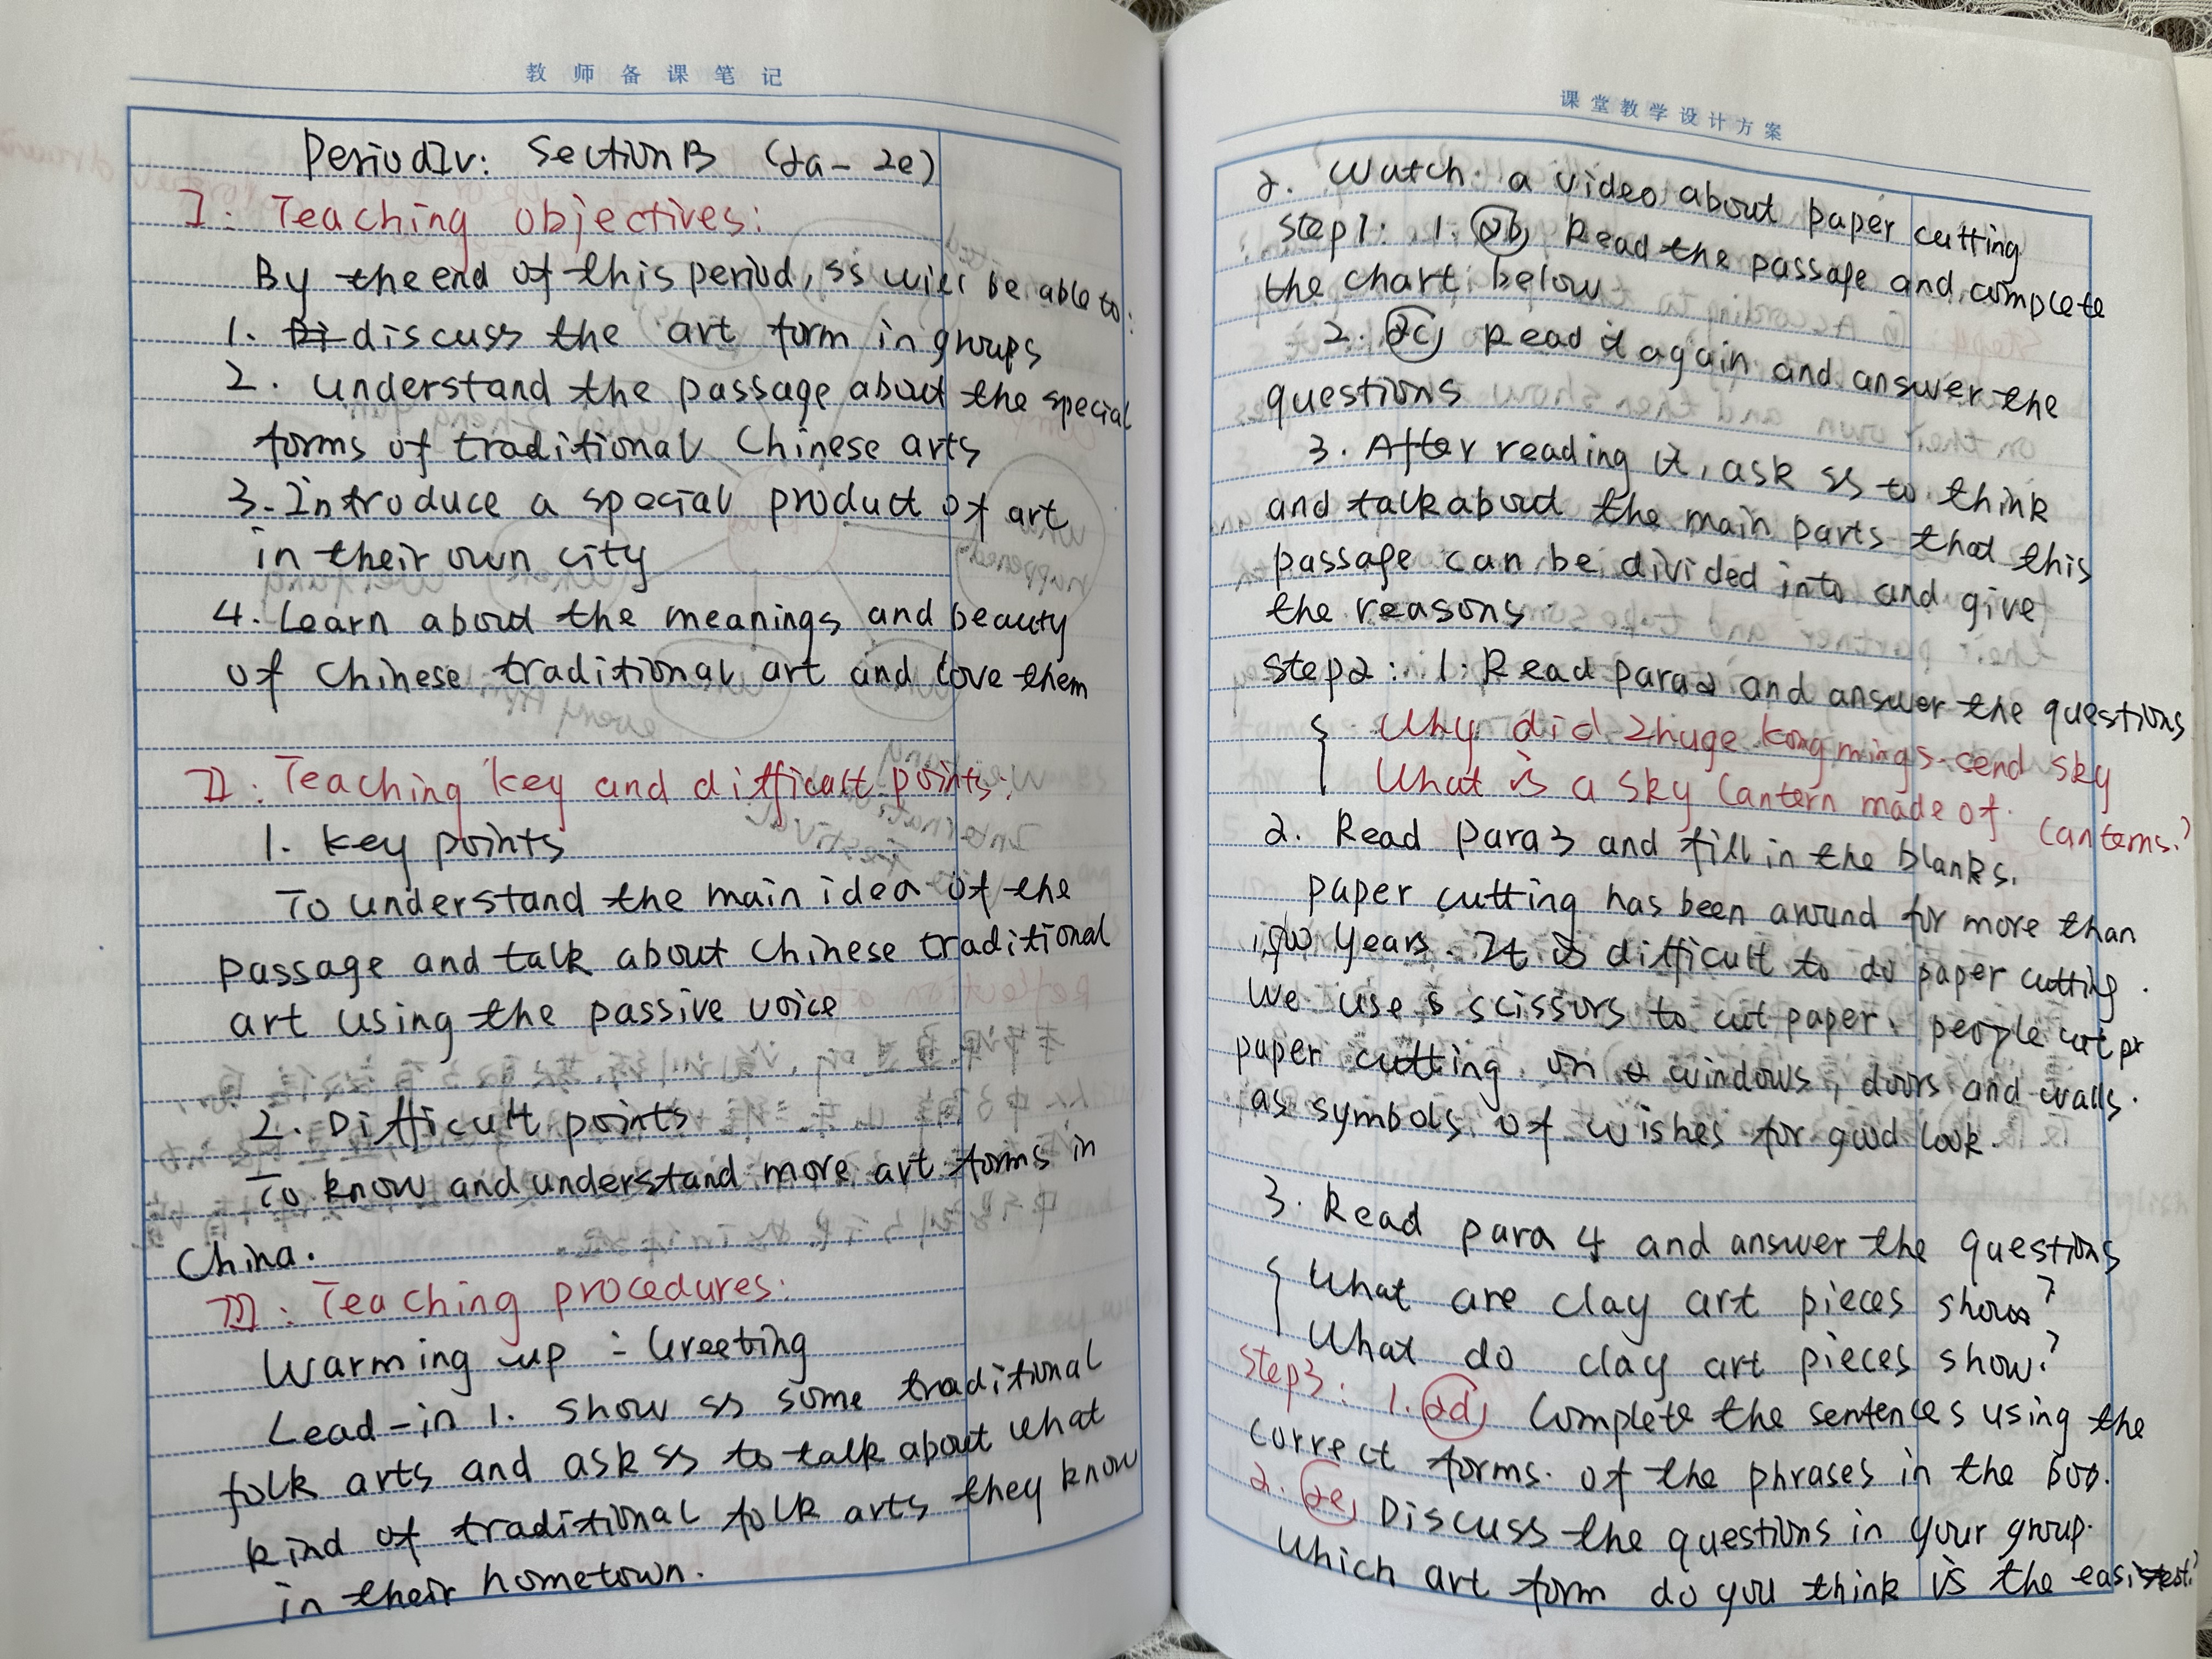 教师备课笔记
Period IV: Section B (2a-2e)
I: Teaching objectives:
By the end of this period, ss will be able to:
1. discuss the art form in groups
2. understand the passage about the special
forms of traditional Chinese arts
3. Introduce a special product of art
in their own city
4. Learn about the meanings and beauty
of Chinese traditional art and love them
II: Teaching key and difficult points:
1. key points
To understand the main idea of the
passage and talk about Chinese traditional
art using the passive voice
2. Difficult points
To know and understand more art forms in
China.
III: Teaching procedures:
Warming up: Greeting
Lead-in 1. show ss some traditional
folk arts and ask ss to talk about what
kind of traditional folk arts they know
in their hometown.
课堂教学设计方案
2. Watch a video about paper cutting
Step1: 1. 2b, Read the passage and complete
the chart below
2. 2c, Read it again and answer the
questions
3. After reading it, ask ss to think
and talk about the main parts that this
passage can be divided into and give
the reasons
Step2: 1. Read para2 and answer the questions
Why did Zhuge kongmings send sky
lanterns?
What is a sky lantern made of
2. Read para3 and fill in the blanks.
paper cutting has been around for more than
1500 years. It is difficult to do paper cutting.
We use scissors to cut paper. people cut
paper cutting on windows, doors and walls.
as symbols of wishes for good look.
3. Read para 4 and answer the questions
What are clay art pieces show?
What do clay art pieces show?
Step3: 1. 2d, Complete the sentences using the
correct forms of the phrases in the box.
2. 2e, Discuss the questions in your group.
Which art form do you think is the easiest?